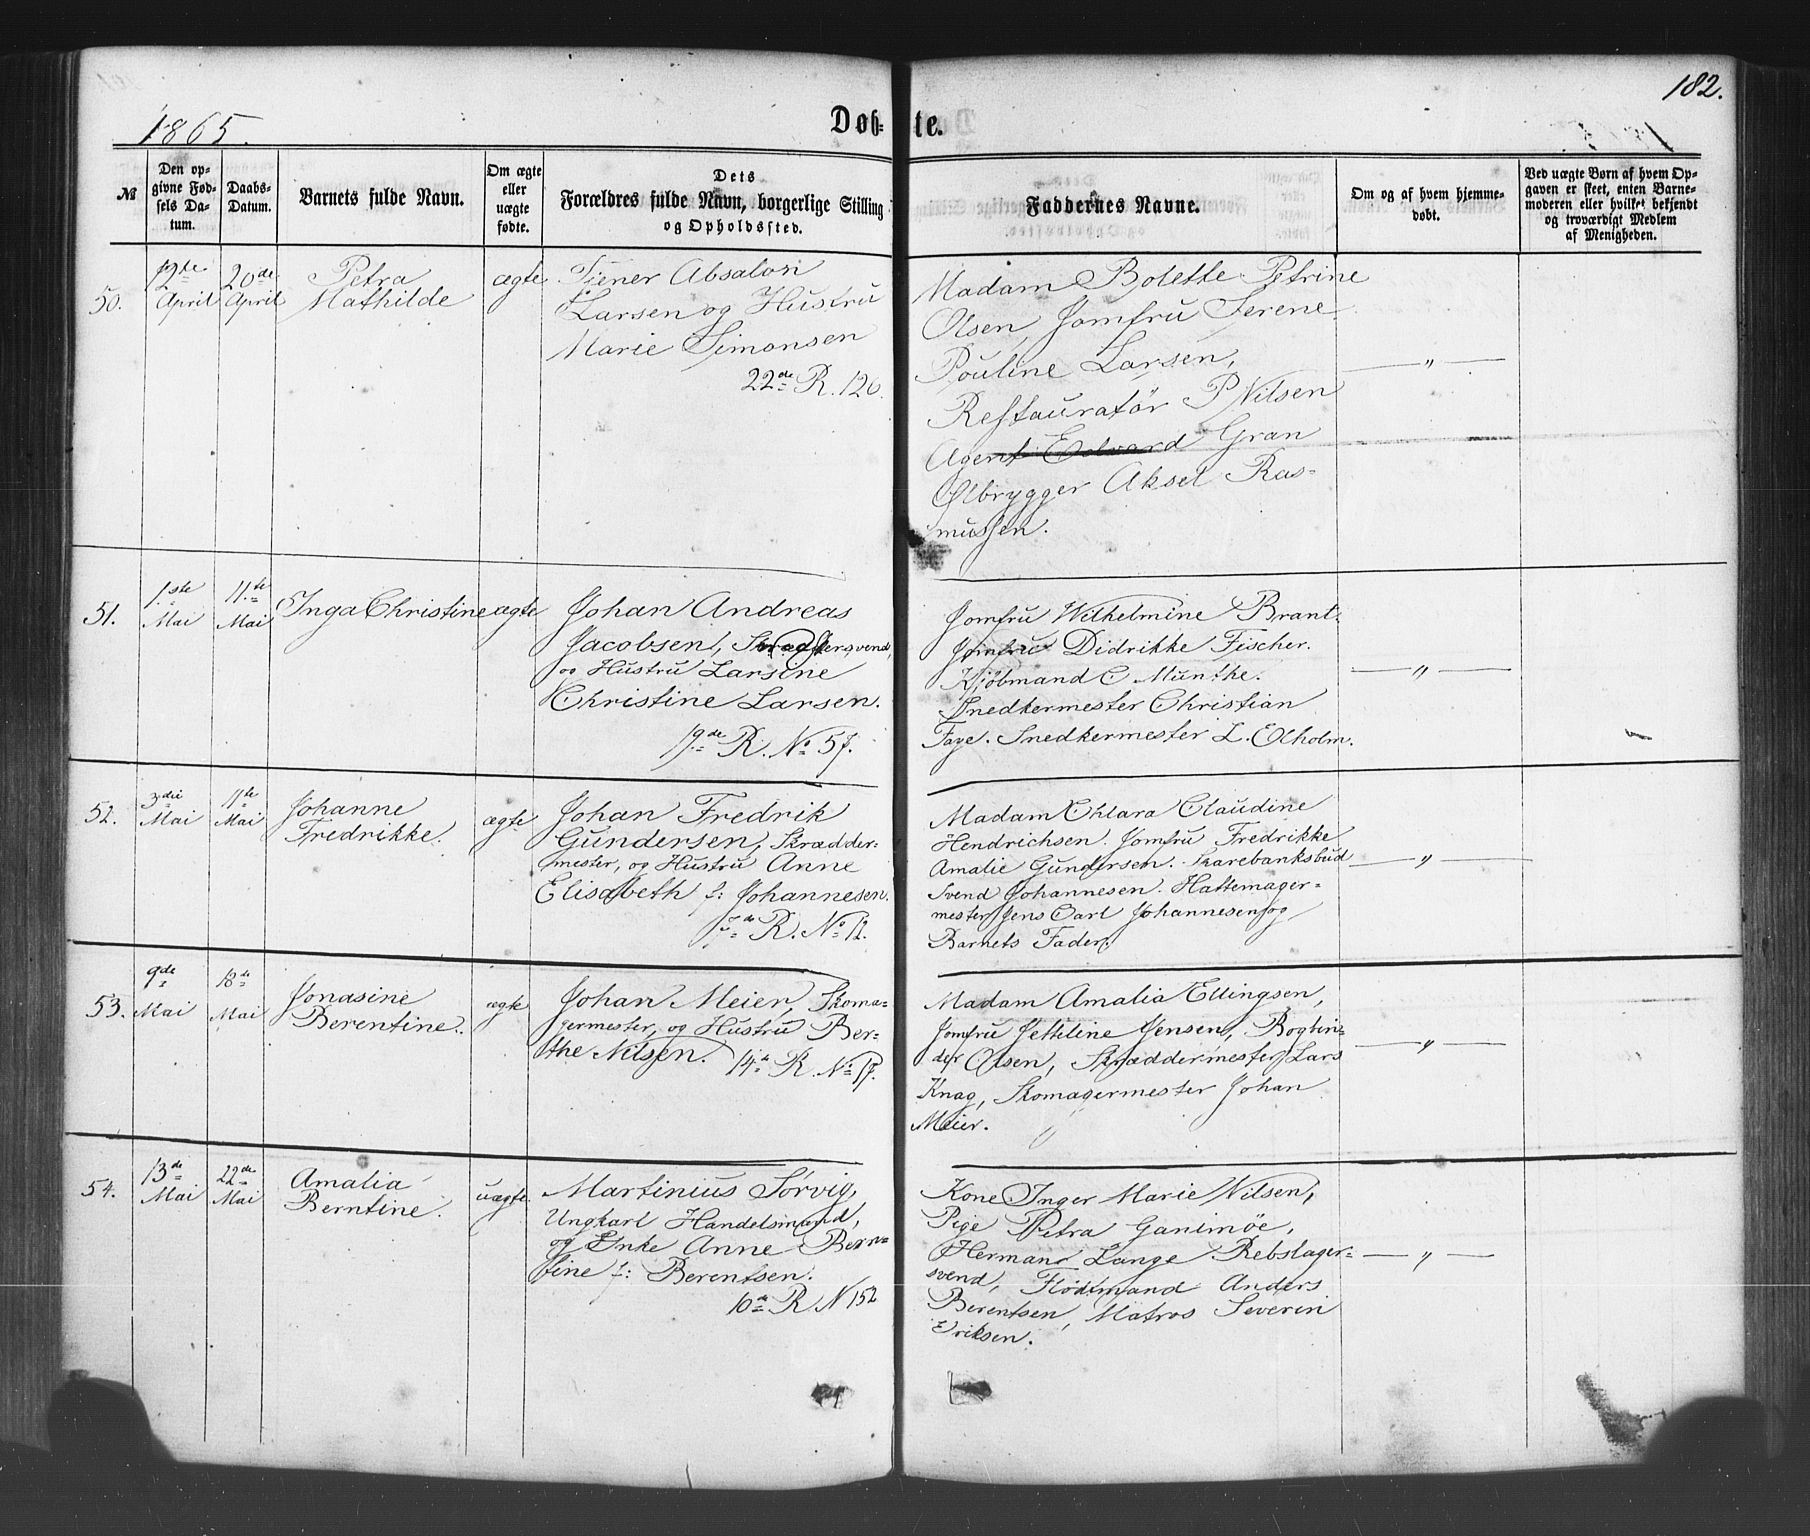 182.
1865.
Døb-te.
№
Den op-
givne Fød-
sels Da-
tum.
Daabs-
Datum.
Barnets fulde Navn.
Om ægte
eller
uægte
fødte.
Dets
Forældres fulde Navn, borgerlige Stilling
og Opholdssted.
Faddernes Navne.
Om og af hvem hjemme-
døbt.
Ved uægte Børn af hvem Op-
gaven er skeet, enten Barne-
moderen eller hvilket bekjendt
og troværdigt Medlem
af Menigheden.
50.
12te
April
20de
April
Petra
Mathilde
ægte
Tjener Absalon
Larsen og Hustru
Marie Simonsen
22de R. 120.
Madam Bolette Petrine
Olsen, Jomfru Serene
Pouline Larsen,
Restauratør P Nilsen
Agent Edvard Gran
Ølbrygger Aksel Ras-
mussen.
— " —
51.
1ste
Mai
11te
Mai
Inga Christine
ægte
Johan Andreas
Jacobsen, Skræddersvend,
og Hustru Larsine
Christine Larsen.
19de R. No 57.
Jomfru Wilhelmine Brant.
Jomfru Didrikke Fischer.
Kjøbmand C Munthe.
Snedkermester Christian
Faye. Snedkermester L. Olholm.
— " —
52.
3die
Mai
11te
Mai
Johanne
Fredrikke.
ægte
Johan Fredrik
Gundersen, Skrædder-
mester, og Hustru Anne
Elisabeth f: Johannesen.
7de R. No 12.
Madam Chlara Claudine
Hendrichsen. Jomfru Fredrikke
Amalie Gundersen. Sparebanksbud
Svend Johannesen. Hattemager-
mester Jens Carl Johannesen og
Barnets Fader.
— " —
53.
9de
Mai
18de
Mai
Jonasine
Berentine.
ægte
Johan Meier, Skoma-
germester, og Hustru Ber-
the Nilsen.
14de R. No 17.
Madam Amalia Ellingsen,
Jomfru Jettiline Jensen, Bogbin-
der Olsen, Skræddermester Lars
Knag, Skomagermester Johan
Meier.
— " —
54.
13de
Mai
22de
Mai
Amalia
Berntine.
uægte
Martinius Sørvig,
Ungkarl Handelsmand,
og Enke Anne Bern-
tine f: Berentsen.
10de R N 152
Kone Inger Marie Nilsen,
Pige Petra Ganimøe,
Herman Lange Rebslager-
svend, Flødtmand Anders
Berentsen, Matros Severin
Eriksen.
— " —